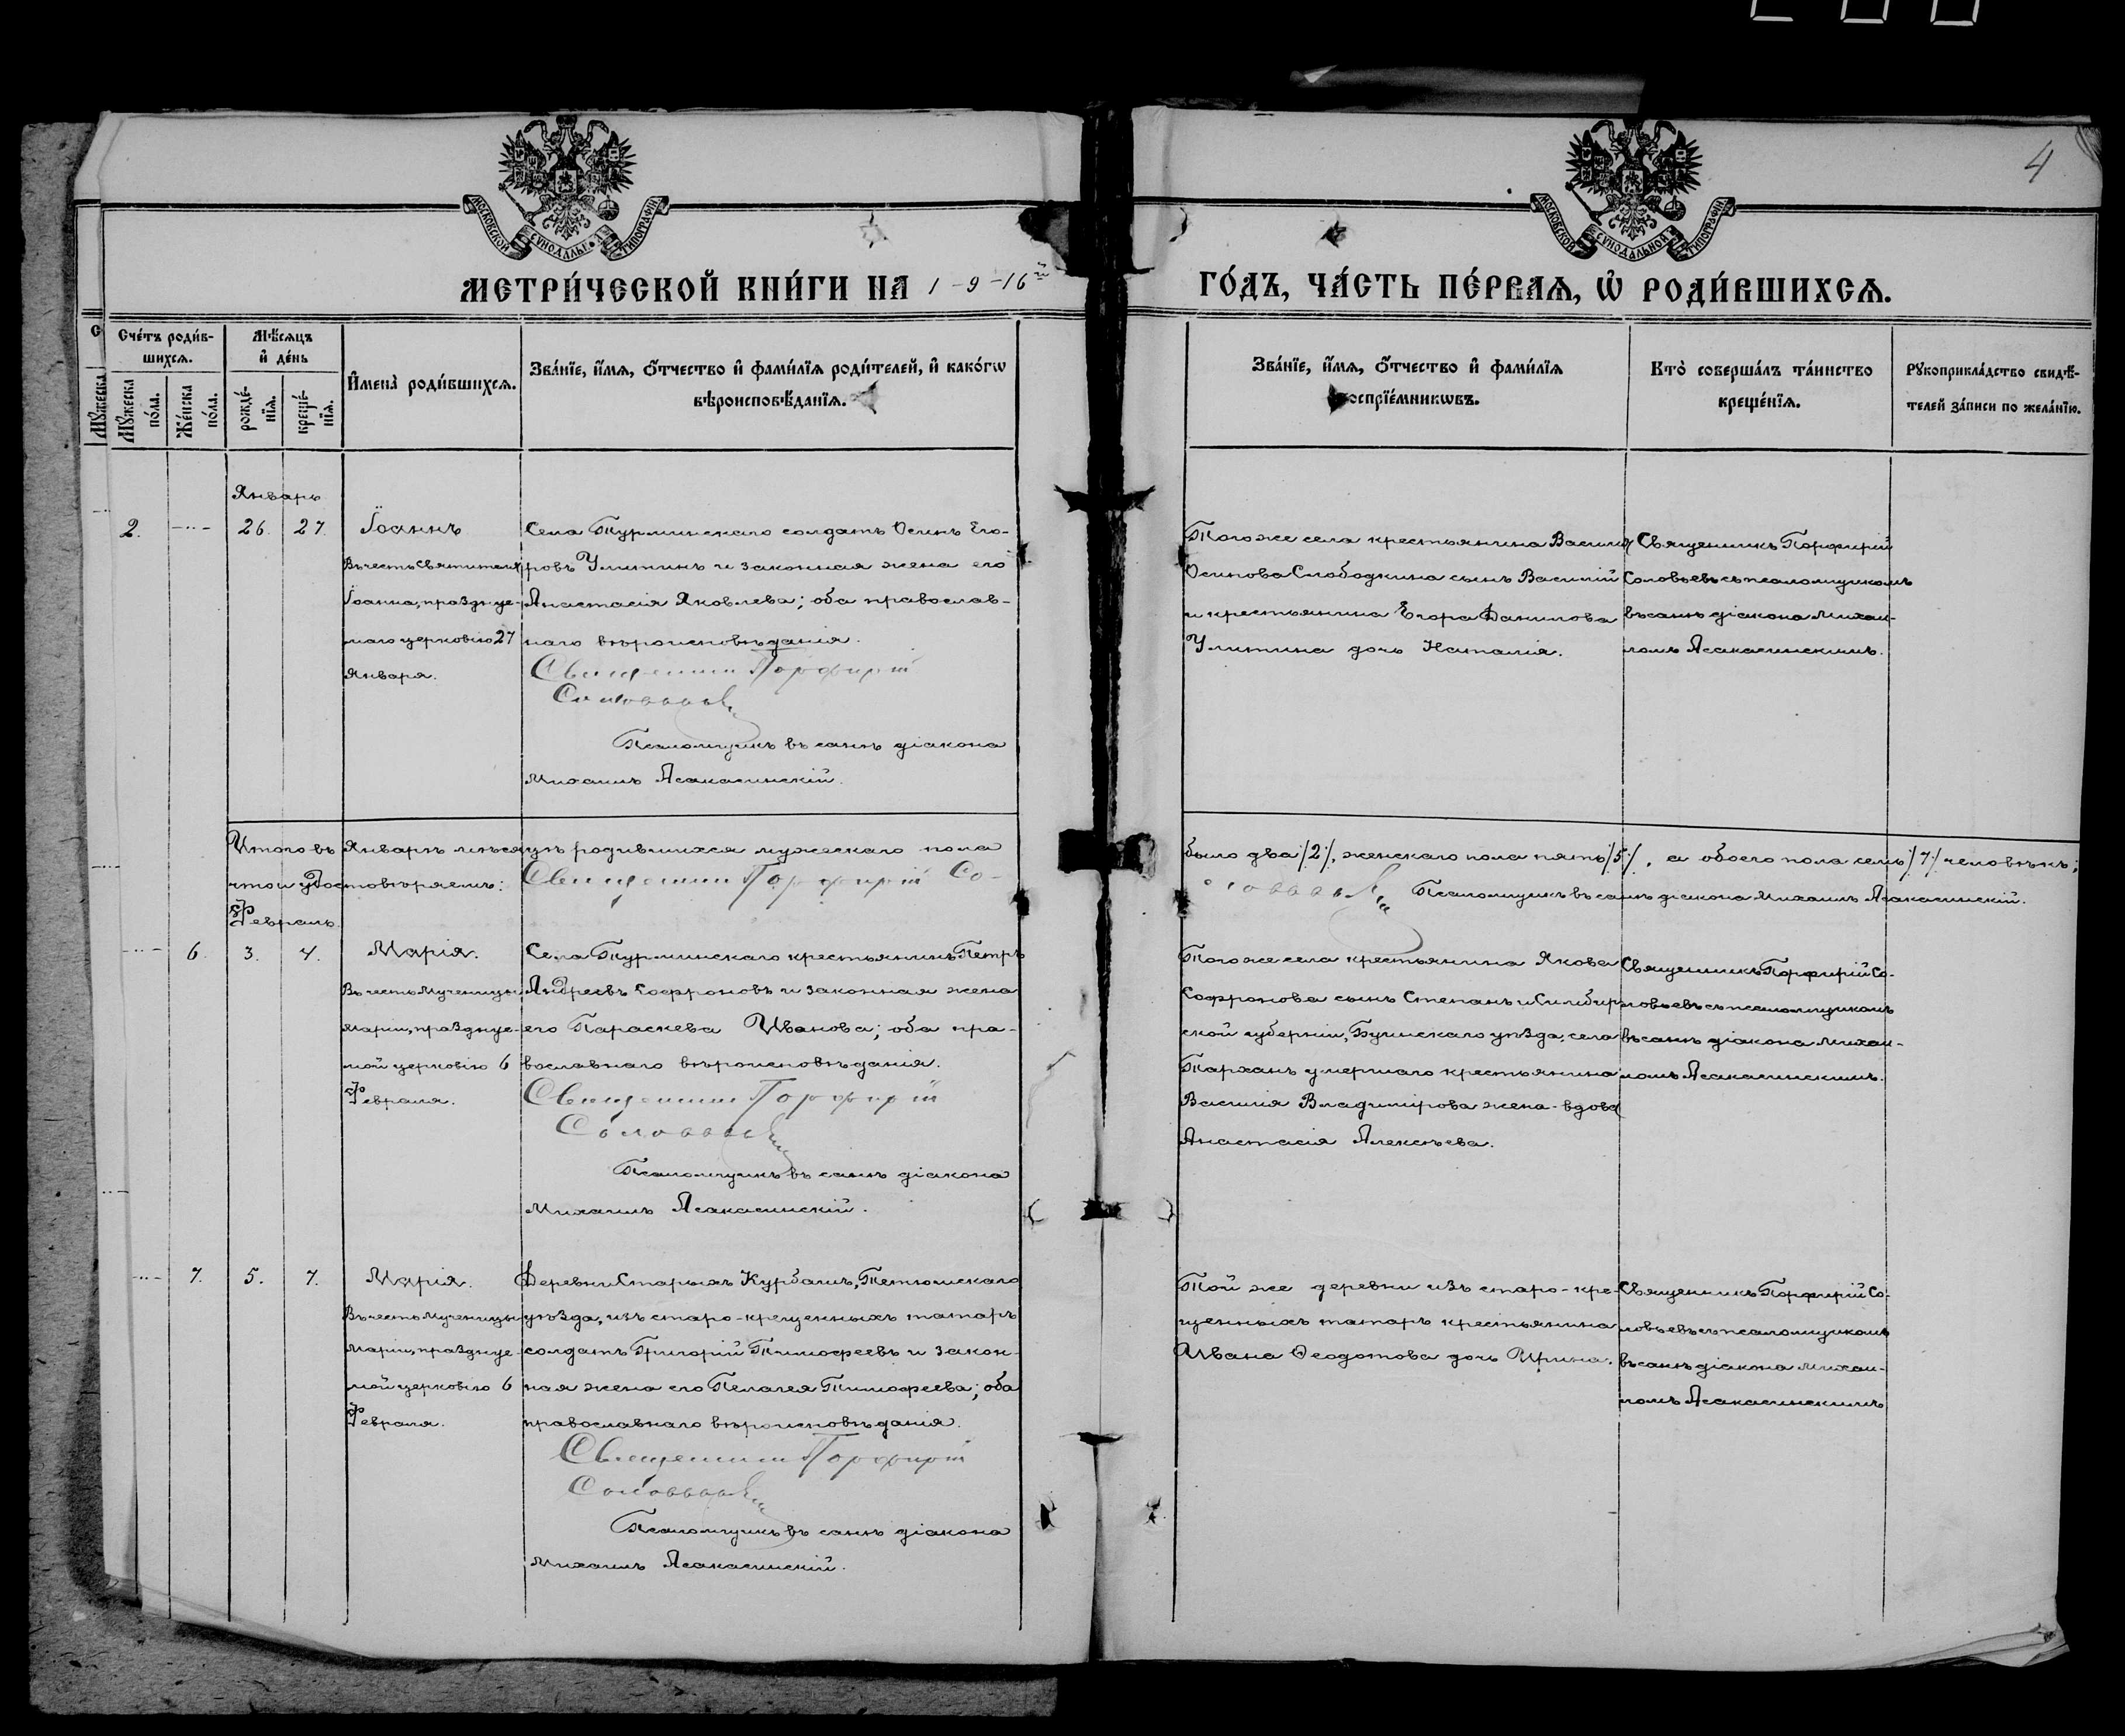 4
МОСКОВСКОЙ СѴНОДАЛЬНОЙ ТИПОГРАФІИ
МОСКОВСКОЙ СѴНОДАЛЬНОЙ ТИПОГРАФІИ
МЕТРИ́ЧЕСКОЙ КНИ́ГИ НА 1-9-16й ГО́ДЪ, ЧА́СТЬ ПЕ́РВАЯ, Ѡ҆ РОДИ́ВШИХСЯ.
Сче́тъ роди́в-
шихся.
Мꙋжеска по́ла.
Же́нска по́ла.
Мѣ́сяцъ
и҆ де́нь
рожде́-
нїя.
креще́-
нїя.
И҆мена̀ роди́вшихся.
Зва́нїе, и҆́мя, ѻ҆́тчество и҆ фами́лїя роди́телей, и҆ како́гѡ
вѣроисповѣ́данїя.
Зва́нїе, и҆́мя, ѻ҆́тчество и҆ фами́лїя
воспрїе́мникѡвъ.
Кто̀ соверша́лъ та́инство
креще́нїя.
Рꙋкоприкла́дство свидѣ́-
телей за́писи по жела́нїю.
Январь
2. -··- 26. 27. Іоаннъ
Въ честь Святителя
Іоанна, празднуе-
маго церковію 27
Января.
Села Турминскаго солдатъ Осипъ Его-
ровъ Улитинъ и законная жена его
Анастасія Яковлева; оба православ-
наго вѣроисповѣданія.
Священникъ Порфирій
Соловьевъ
Псаломщикъ въ санѣ діакона
Михаилъ Асакасинскій.
Того же села крестьянина Василія
Осипова Слободкина сынъ Василій
и крестьянина Егора Данилова
Улитина дочь Наталія.
Священникъ Порфирій
Соловьевъ съ псаломщикомъ
въ санѣ діакона Михаи-
ломъ Асакасинскимъ.
Итого въ Январѣ мѣсяцѣ родившихся мужескаго пола было два /2/, женскаго пола пять /5/, а обоего пола семь /7/ человѣкъ;
что и удостовѣряемъ: Священникъ Порфирій Со-
ловьевъ Псаломщикъ въ санѣ діакона Михаилъ Асакасинскій.
Февраль.
-··- 6. 3. 4. Марія.
Въ честь Мученицы
Маріи, празднуе-
мой церковію 6
Февраля.
Села Турминскаго крестьянинъ Петръ
Андреевъ Софроновъ и законная жена
его Параскева Иванова; оба пра-
вославнаго вѣроисповѣданія.
Священникъ Порфирій
Соловьевъ
Псаломщикъ въ санѣ діакона
Михаилъ Асакасинскій.
Того же села крестьянина Якова
Софронова сынъ Степанъ и Симбир-
ской губерніи, Буинскаго уѣзда, села
Тарханъ умершаго крестьянина
Василія Владимірова жена-вдова
Анастасія Алексѣева.
Священникъ Порфирій Со-
ловьевъ съ псаломщикомъ
въ санѣ діакона Михаи-
ломъ Асакасинскимъ.
-··- 7. 5. 7. Марія.
Въ честь Мученицы
Маріи, празднуе-
мой церковію 6
Февраля.
Деревни Старыхъ Курбашъ, Тетюшскаго
уѣзда, изъ старо-крещенныхъ татаръ
солдатъ Григорій Тимофеевъ и закон-
ная жена его Пелагея Тимофеева; оба
православнаго вѣроисповѣданія.
Священникъ Порфирій
Соловьевъ
Псаломщикъ въ санѣ діакона
Михаилъ Асакасинскій.
Той же деревни изъ старо-кре-
щенныхъ татаръ крестьянина
Ивана Ѳеодотова дочь Ирина.
Священникъ Порфирій Со-
ловьевъ съ псаломщикомъ
въ санѣ діакона Михаи-
ломъ Асакасинскимъ